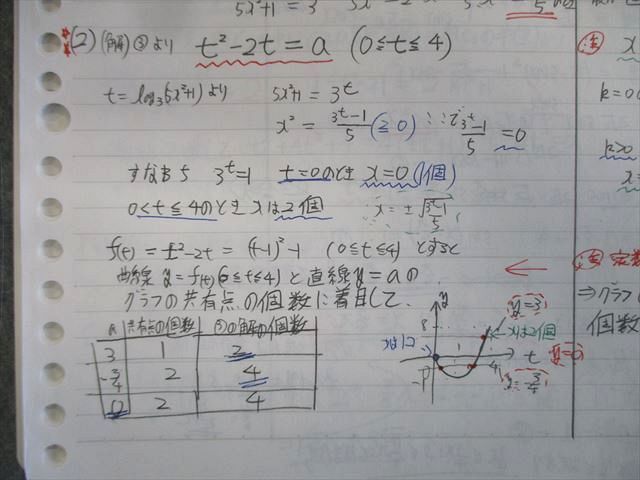 5x²+1 = 3
(2) (解) ③より t²-2t = a (0≦t≦4)
t = log₃(5x²+1) より 5x²+1 = 3^t
x² = (3^t-1)/5 (≧0) ∴ (3^t-1)/5 = 0
すなわち 3^t=1 t=0のとき x=0 (1個)
0<t≦4のとき xは2個 x = ±√((3^t-1)/5)
f(t) = t²-2t = (t-1)²-1 (0≦t≦4) とすると
曲線 y=f(t) (0≦t≦4) と直線 y=a の
グラフの共有点の個数に着目して、
a 共有点の個数 の解の個数
3 1 2
-3/4 2 4
0 2 4
y
8
y=3
xは2個
xは1コ
1
4
t
y=0
-1
y=-3/4
x
k=0
k>0
x=
定数
⇒グラフ
個数